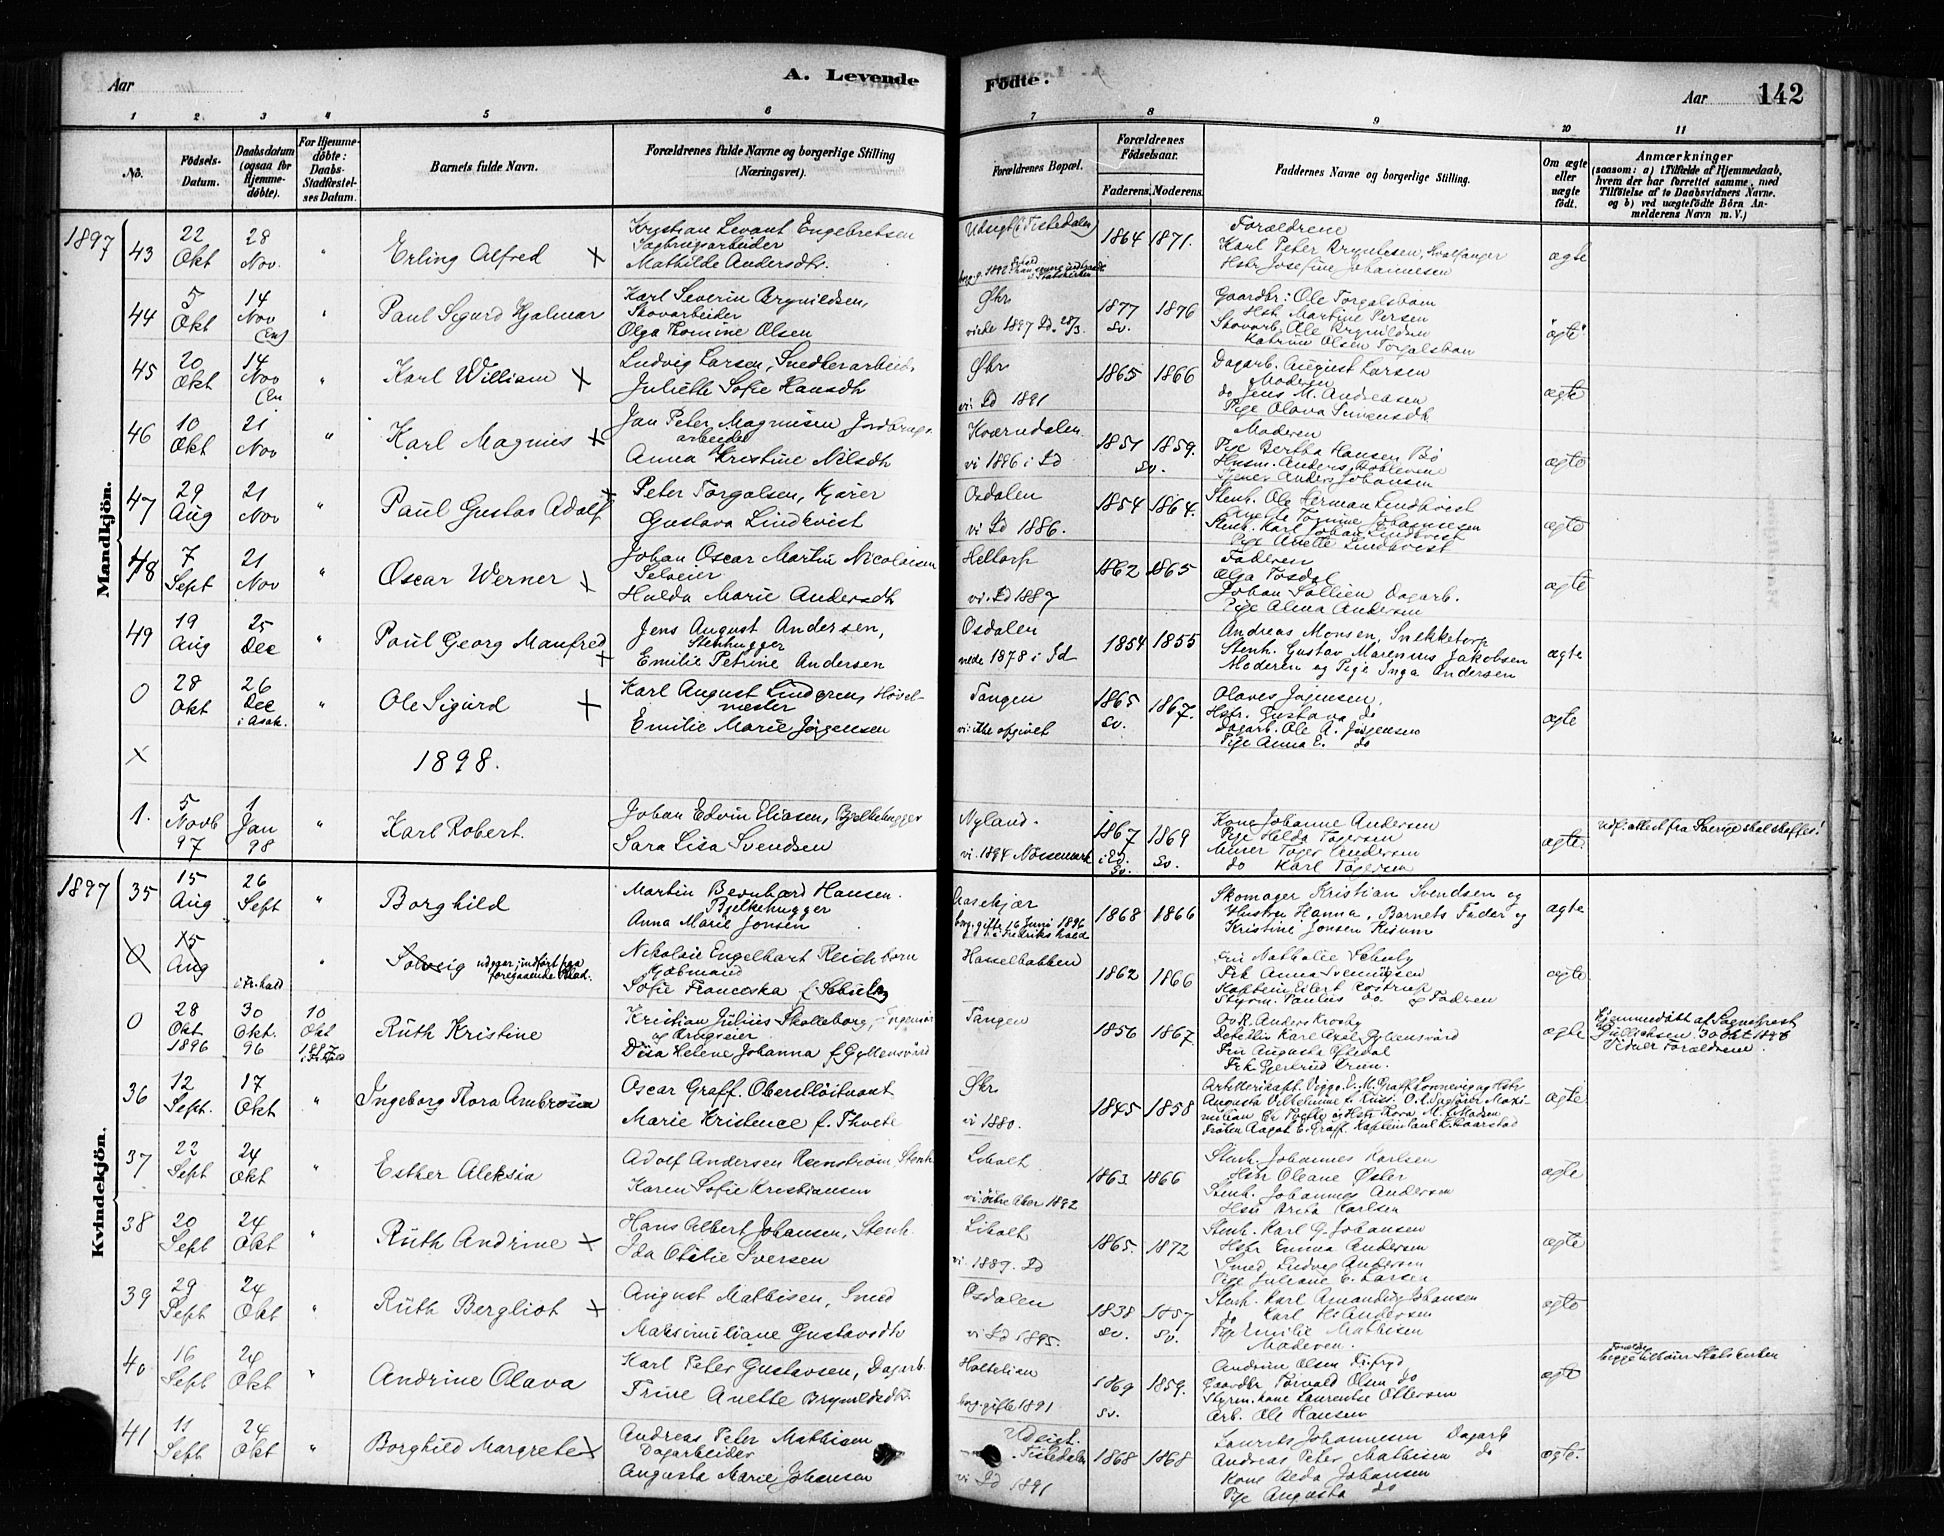 Aar
A. Levende
Fodte.
Aar 142
1 2 3 4 5 6 7 8 9 10 11
No.
Födsels-Datum.
Daabsdatum (ogsaa for Hjemmedöbte).
For Hjemmedöbte: Daabs-Stadfæstelses Datum.
Barnets fulde Navn.
Forældrenes fulde Navne og borgerlige Stilling (Næringsvei).
Forældrenes Bopæl.
Forældrenes Födselsaar.
Faderens. Moderens.
Faddernes Navne og borgerlige Stilling.
Om ægte eller uægte födt.
Anmærkninger
(saasom: a) i Tilfælde af Hjemmedaab, hvem der har forrettet samme, med Tilföielse af to Daabsvidners Navne, og b) ved uægtefödte Börn Anmelderens Navn m. V.)
Mandkjön.
1897
43 22 Okt 28 Nov. " Erling Alfred x
Kristian Levant Engebretsen
Sagbrugsarbeider
Mathilde Andersdtr.
Udsigt (Tistedalen)
1864 1871.
Forældrene
Karl Peter Bryntesen, Hvalfanger
Hstr Josefine Johannesen
ægte
44 5 Okt 14 Nov " Paul Sigurd Hjalmar
Karl Severin Brynildsen,
Skovarbeider
Olga Thomine Olsen
Øhr
viede 1897 Id. 28/3
1877 sv. 1876
Gaardbr: Ole Torgalsbøen
Hst Martine Persen
Skovarb. Ole Brynildsen
Katrine Olsen Torgalsbøen
"ægte"
45 20 Okt 14 Nov " Karl William x
Ludvig Larsen, Snedkerarbeid.
Juliette Sofie Hansdtr
Øhr
vi: Id 1891
1865 1866
Dagarb. August Larsen
Moderen
do Jens M. Andreasen
Pige Olava
ægte
46 10 Okt 21 Nov " Karl Magnus x
Jan Peter Magnusen Jordbrugs
arbeider
Anna Kristine Nilsdtr
Kværndalen
vi 1886 i Id
1851 sv. 1859.
Moderen
Pige Bertha Hansen Bø
Husm. Anders
Anders Johansen
ægte
47 29 Aug 21 Nov " Paul Gustav Adolf x
Peter Torgalsen, Kjører
Gustava Lindkvist
Osdalen
vi Id 1886.
1854 1864.
Stenh. Ole Herman Lindkvist
Anette Tomine Johannesen
Stenh. Karl Johan Lindkvist
Pige Anette Lindkvist
ægte
48 7 Sept 21 Nov " Oscar Werner x
Johan Oscar Martin Nicolaisen
Selveier
Hulda Marie Andersdtr
Heltorp
vi. Id 1887
1862 1865
Faderen
Olga Tosdal
Johan Sollien Dagarb.
Pige Alma Andersen
ægte
49 19 Aug 25 Dec " Paul Georg Manfred x
Jens August Andersen,
Stenhugger
Emilie Petrine Andersen
Osdalen
viede 1878 i Id
1854 1855
Andreas Monsen, Snekketorp
Stenh. Gustav Marenius Jakobsen
Moderen og Pige Inga Andersen
ægte
0 28 Okt 26 Dec i Asak. " Ole Sigurd x
Karl August Lindgren, Høvel-
mester
Emilie Marie Jørgensen
Tangen
vi: ikke opgivet
1865 sv. 1867.
Olaves Jørgensen,
Hstr. Gustava do
Dagarb. Ole A. Jørgensen
Pige Anna E. do
ægte
x 1898.
1. 5 Novb 97 1 Jan 98 " Karl Robert.
Johan Edvin Eliasen, Bjelkehugger
Sara Lisa Svendsen
Nyland.
vi. 1894 Nössemark
1867 1869 sv.
Kone Johanne Andersen
Pige Helda Tøgersen
Murer Tøger Andersen
do Karl Tøgersen
ægte
Udf. attest fra Sverige skal skaffes!
Kvindekjön.
1897
35 15 Aug 26 Sept " Borghild
Martin Bernhard Hansen.
Bjelkehugger
Anna Marie Jonsen
Aasekjær
borg. gifte 16 Juni 1896
1868 1866
Skomager Kristian Svendsen og
Hustru Hanna, Barnets Fader og
Kristine Jonsen Risum
ægte
0 15 Aug i Fr.hald " Solveig udgaar, indført paa foregaaende Blad.
Nikolai Engelhart Reichborn
Kjøbmand
Sofie Franciska f. Schulz
Hasselbakken
1862 1866
Fru Nathalie Scheuby
Frk Anna Svenningsen
Kaptein Eilert Rostrup
Styrm. Paulus do og Faderen
ægte
0 28 Okt. 1896 30 Okt. 96 10 Okt 1897 Ruth Kristine
Kristian Julius Skolleborg, Ingeniør
og Brugseier
Disa Helene Johanna f. Gyllensvärd
Tangen
1856 1867
OvR. Anders Krosby
Karl Axel Gyllensvärd
Fru Augusta Oftedal
Frk Gjertrud Bruun.
ægte
Hjemmedøbt af Sogneprest
30 Okt 1896
Vidner Forældrene.
36 12 Sept. 17 Okt " Ingeborg Thora Ambrosia
Oscar Graff. Oberstløitnant
Marie Kristence f. Thvete
Øhr
vi 1880.
1845 1858
Augusta Vilhelmine
Frøken Aagot E. Graff. Kaptein Paul K. Haarstad
ægte
37 22 Sept 24 Okt " Esther Aleksia
Adolf Andersen Renström, Stenh
Karen Sofie Kristiansen
Liholt
1863 1866
Stenh. Johannes Karlsen
Hstr Oleane Øster
Stenh. Johannes Andersen
Hstr Brita Karlsen
ægte
38 20 Sept 24 Okt " Ruth Andrine x
Hans Albert Johansen, Stenh.
Ida Otilie Iversen
Liholt
vi. 1889. Id
1865. 1872
Stenh. Karl G. Johansen
Hstr Emma Andersen
Smed Ludvig Andersen
Pige Juliane E. Larsen
ægte
39 29 Sept 24 Okt " Ruth Bergliot x
August Mathisen, Smed
Maksimiliane Gustavsdtr
Osdalen
vi Id 1895.
1838 sv. 1857 sv.
Stenh. Karl Amandus Johansen
do Karl H. Andersen
Pige Emilie Mathisen
Moderen.
ægte
40 16 Sept 24 Okt " Andrine Olava
Karl Peter Gustavsen, Dagarb.
Trine Anette Brynildsdtr.
Holtelian
borg. gifte 1891
1869 sv. 1859.
Andrine Olsen
Gaardbr Torvald Olsen do
Styrm. kone Laurentse Ottersen
Arb. Ole Hansen
ægte
Forældre
begge tilhører Statskirken
41 11 Sept 24 Okt " Borghild Margrete x
Andreas Peter Mathisen
Dagarbeider
Augusta Marie Johansen
Udsigt.
Tistedalen
vi Id 1891
1868 1868
Laurits Johannesen Dagarb
Andreas Peter Mathisen do
Kone Alda Johansen
Pige Augusta do
ægte.